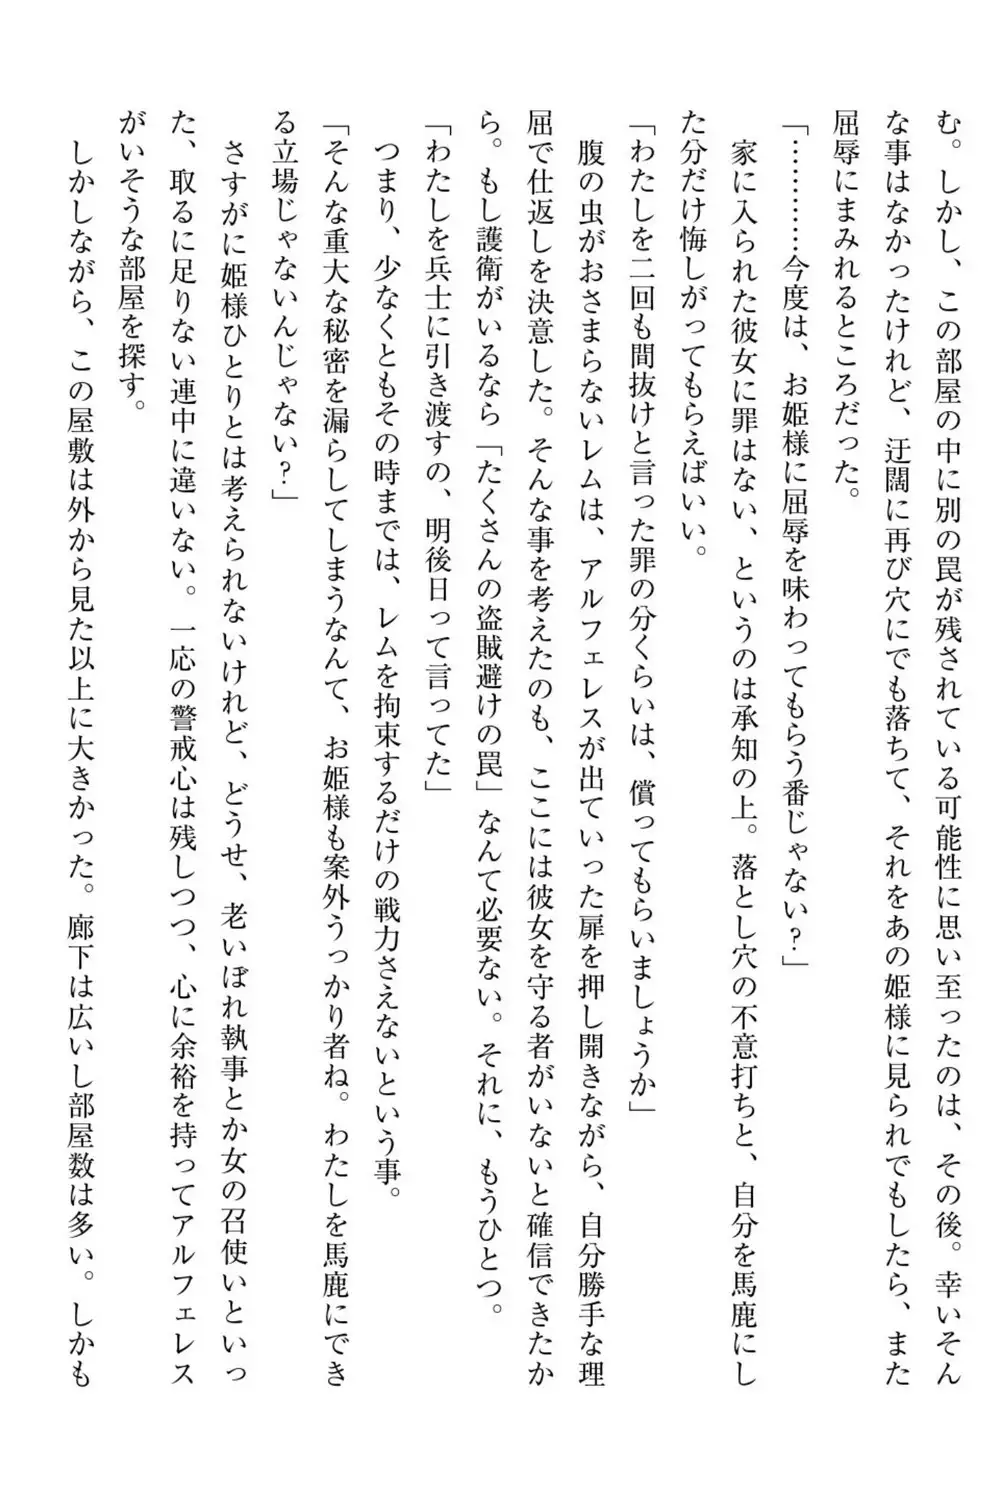 む。しかし、この部屋の中に別の罠が残されている可能性に思い至ったのは、その後。幸いそん
な事はなかったけれど、迂闊に再び穴にでも落ちて、それをあの姫様に見られでもしたら、また
屈辱にまみれるところだった。
「…………今度は、お姫様に屈辱を味わってもらう番じゃない？」
家に入られた彼女に罪はない、というのは承知の上。落とし穴の不意打ちと、自分を馬鹿にし
た分だけ悔しがってもらえばいい。
「わたしを二回も間抜けと言った罪の分くらいは、償ってもらいましょうか」
腹の虫がおさまらないレムは、アルフェレスが出ていった扉を押し開きながら、自分勝手な理
屈で仕返しを決意した。そんな事を考えたのも、ここには彼女を守る者がいないと確信できたか
ら。もし護衛がいるなら「たくさんの盗賊避けの罠」なんて必要ない。それに、もうひとつ。
「わたしを兵士に引き渡すの、明後日って言ってた」
つまり、少なくともその時までは、レムを拘束するだけの戦力さえないという事。
「そんな重大な秘密を漏らしてしまうなんて、お姫様も案外うっかり者ね。わたしを馬鹿にでき
る立場じゃないんじゃない？」
さすがに姫様ひとりとは考えられないけれど、どうせ、老いぼれ執事とか女の召使いといっ
た、取るに足りない連中に違いない。一応の警戒心は残しつつ、心に余裕を持ってアルフェレス
がいそうな部屋を探す。
しかしながら、この屋敷は外から見た以上に大きかった。廊下は広いし部屋数は多い。しかも